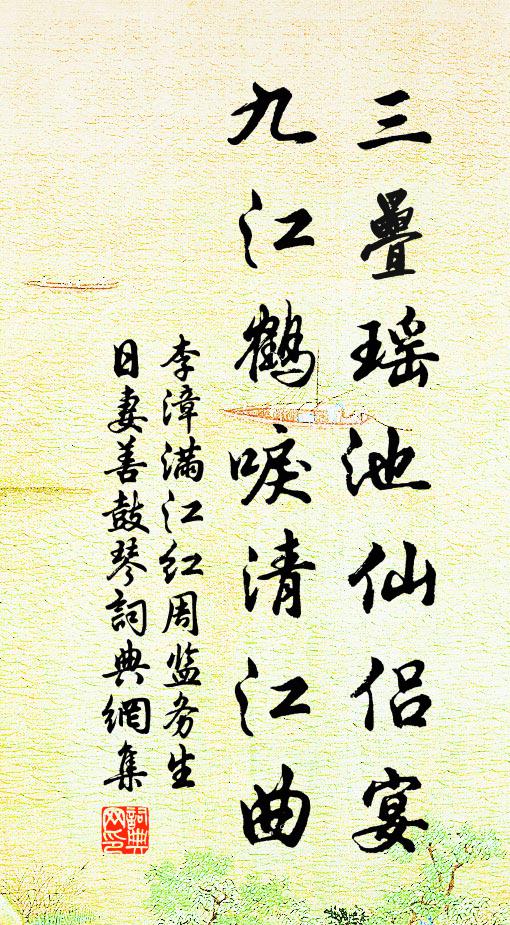 三疊瑶池仙侣宴
九江鶴唳清江曲
李漳满江红周监务生
日妻善鼓琴詞典網集
詞典网印